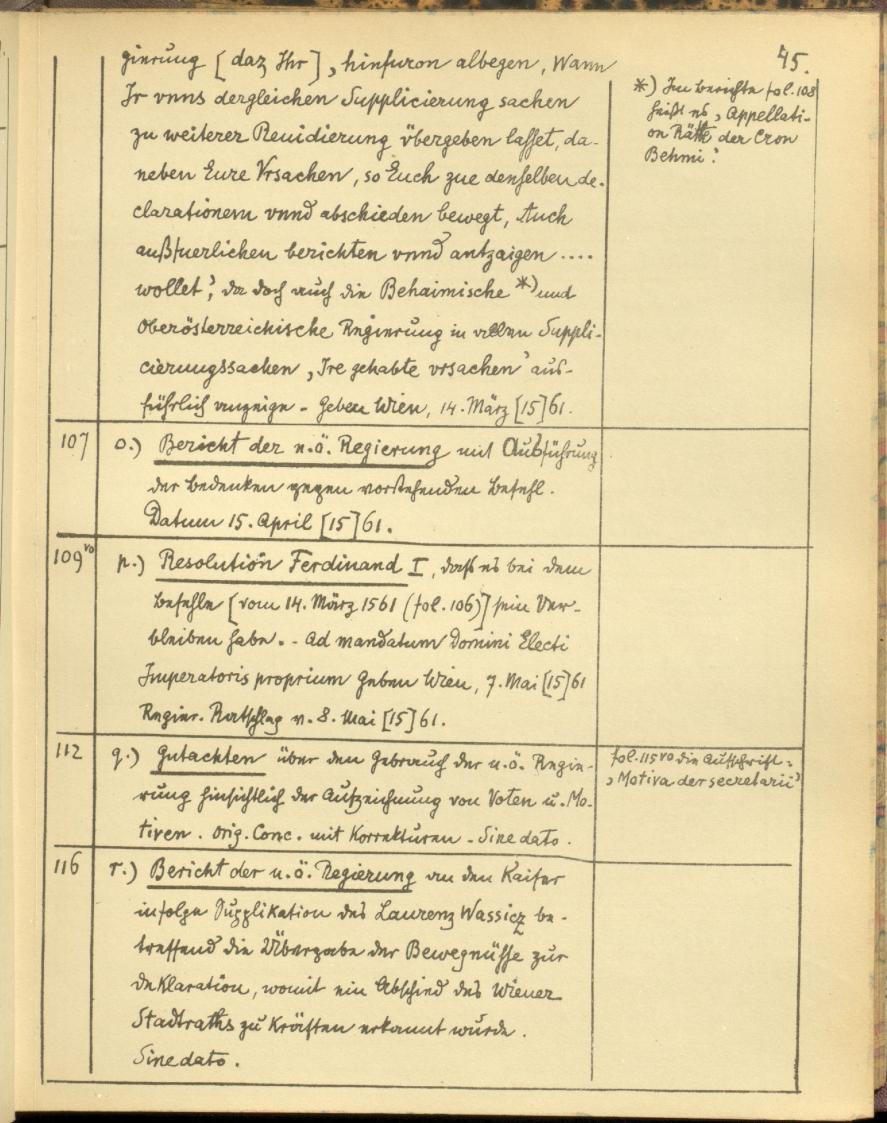 45.
gierung [daz Ihr], hinfuron albegen, Wann
Ir vnns dergleichen Supplicierung sachen
zu weiterer Reuidierung übergeben lasset, da-
neben Eure Vrsachen, so Euch zue denselben de-
clarationem vnnd abschieden bewegt, Auch
außfuerlichen berichten vnnd antzaigen ....
wollet', da doch auch die Behaimische *) und
Oberösterreichische Regierung in allen Suppli-
cierungssachen, 'Ire gehabte vrsachen' aus-
führlich anzeige - Geben Wien, 14. März [15]61.
*) Im Berichte fol. 108
heißt es, 'Appellati-
on Räthe der Cron
Behmi'.
107 o.) Bericht der n.ö. Regierung mit Ausführung
der Bedenken gegen vorstehenden Befehl.
Datum 15. April [15]61.
109vo p.) Resolution Ferdinand I, daß es bei dem
Befehle [vom 14. März 1561 (fol. 106)] sein Ver-
bleiben habe. - Ad mandatum Domini Electi
Imperatoris proprium Geben Wien, 7. Mai [15]61
Regier. Ratschlag v. 8. Mai [15]61.
112 q.) Gutachten über den Gebrauch der n.ö. Regie-
rung hinsichtlich der Aufzeichnung von Voten u. Mo-
tiven. Orig. Conc. mit Korrekturen - Sine dato.
fol. 115vo die Aufschrift:
'Motiva der secretarii'
116 r.) Bericht der n.ö. Regierung an den Kaiser
infolge Supplikation des Laurenz Wassicz be-
treffend die Übergabe der Bewegnüsse zur
Deklaration, womit ein Abschied des Wiener
Stadtraths zu Kräften erkannt wurde.
Sine dato.